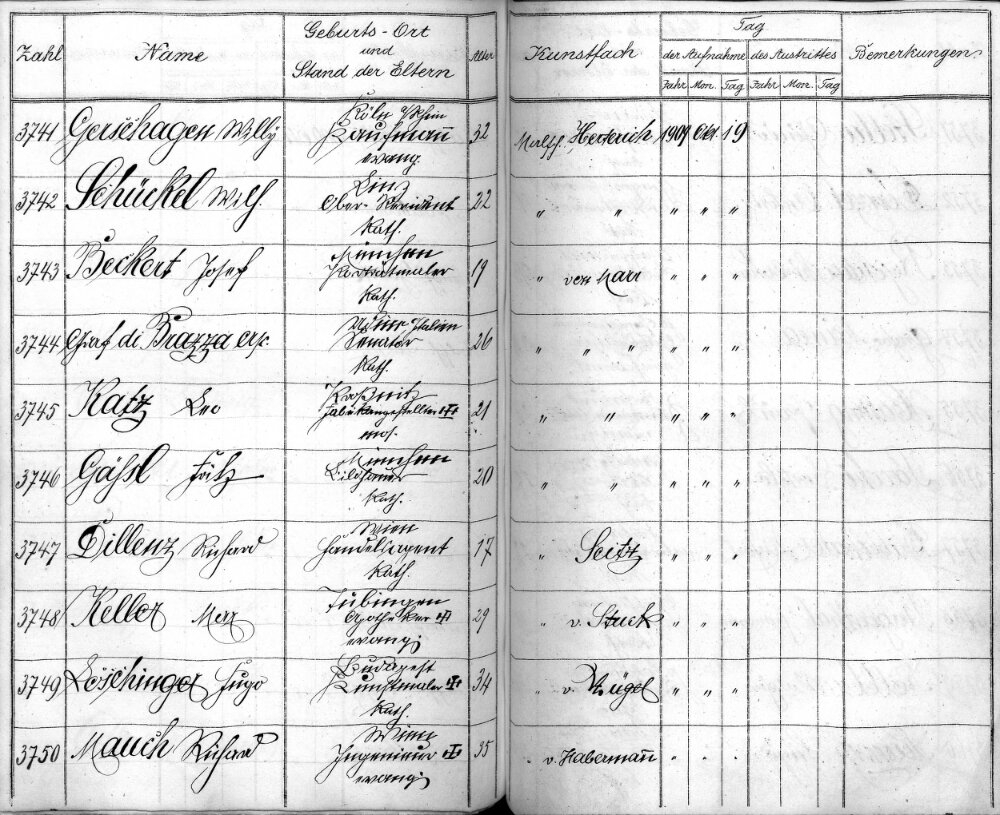 Zahl Name Geburts-Ort und Stand der Eltern Alter Kunstfach Tag der Aufnahme des Austrittes Bemerkungen
Jahr Mon. Tag Jahr Mon. Tag
3741 Gerschagen Willy Köln a/Rhein 32 Malsch. Herterich 1909 Okt. 19
Kaufmann
evang.
3742 Schückel Wilh. Linz 22 " " " " "
Ober-Revident
Kath.
3743 Beckert Josef München 19 " von Marr " " "
Porträtmaler
Kath.
3744 Graf di Brazza Udine Italien 26 " " " " " "
Senator
Kath.
3745 Katz Leo 21 " " " " "
mos.
3746 Gässl Fritz München 20 " " " " "
Bildhauer
Kath.
3747 Dillenz Richard Wien 17 " Seitz " " "
Handelsagent
Kath.
3748 Keller Max Tübingen 29 " v. Stuck " " "
Apotheker ✝
evang.
3749 Löschinger Hugo Budapest 34 " v. Zügel " " "
Kunstmaler ✝
Kath.
3750 Mauch Richard Wien 35 " v. Habermann " " "
Ingenieur ✝
evang.